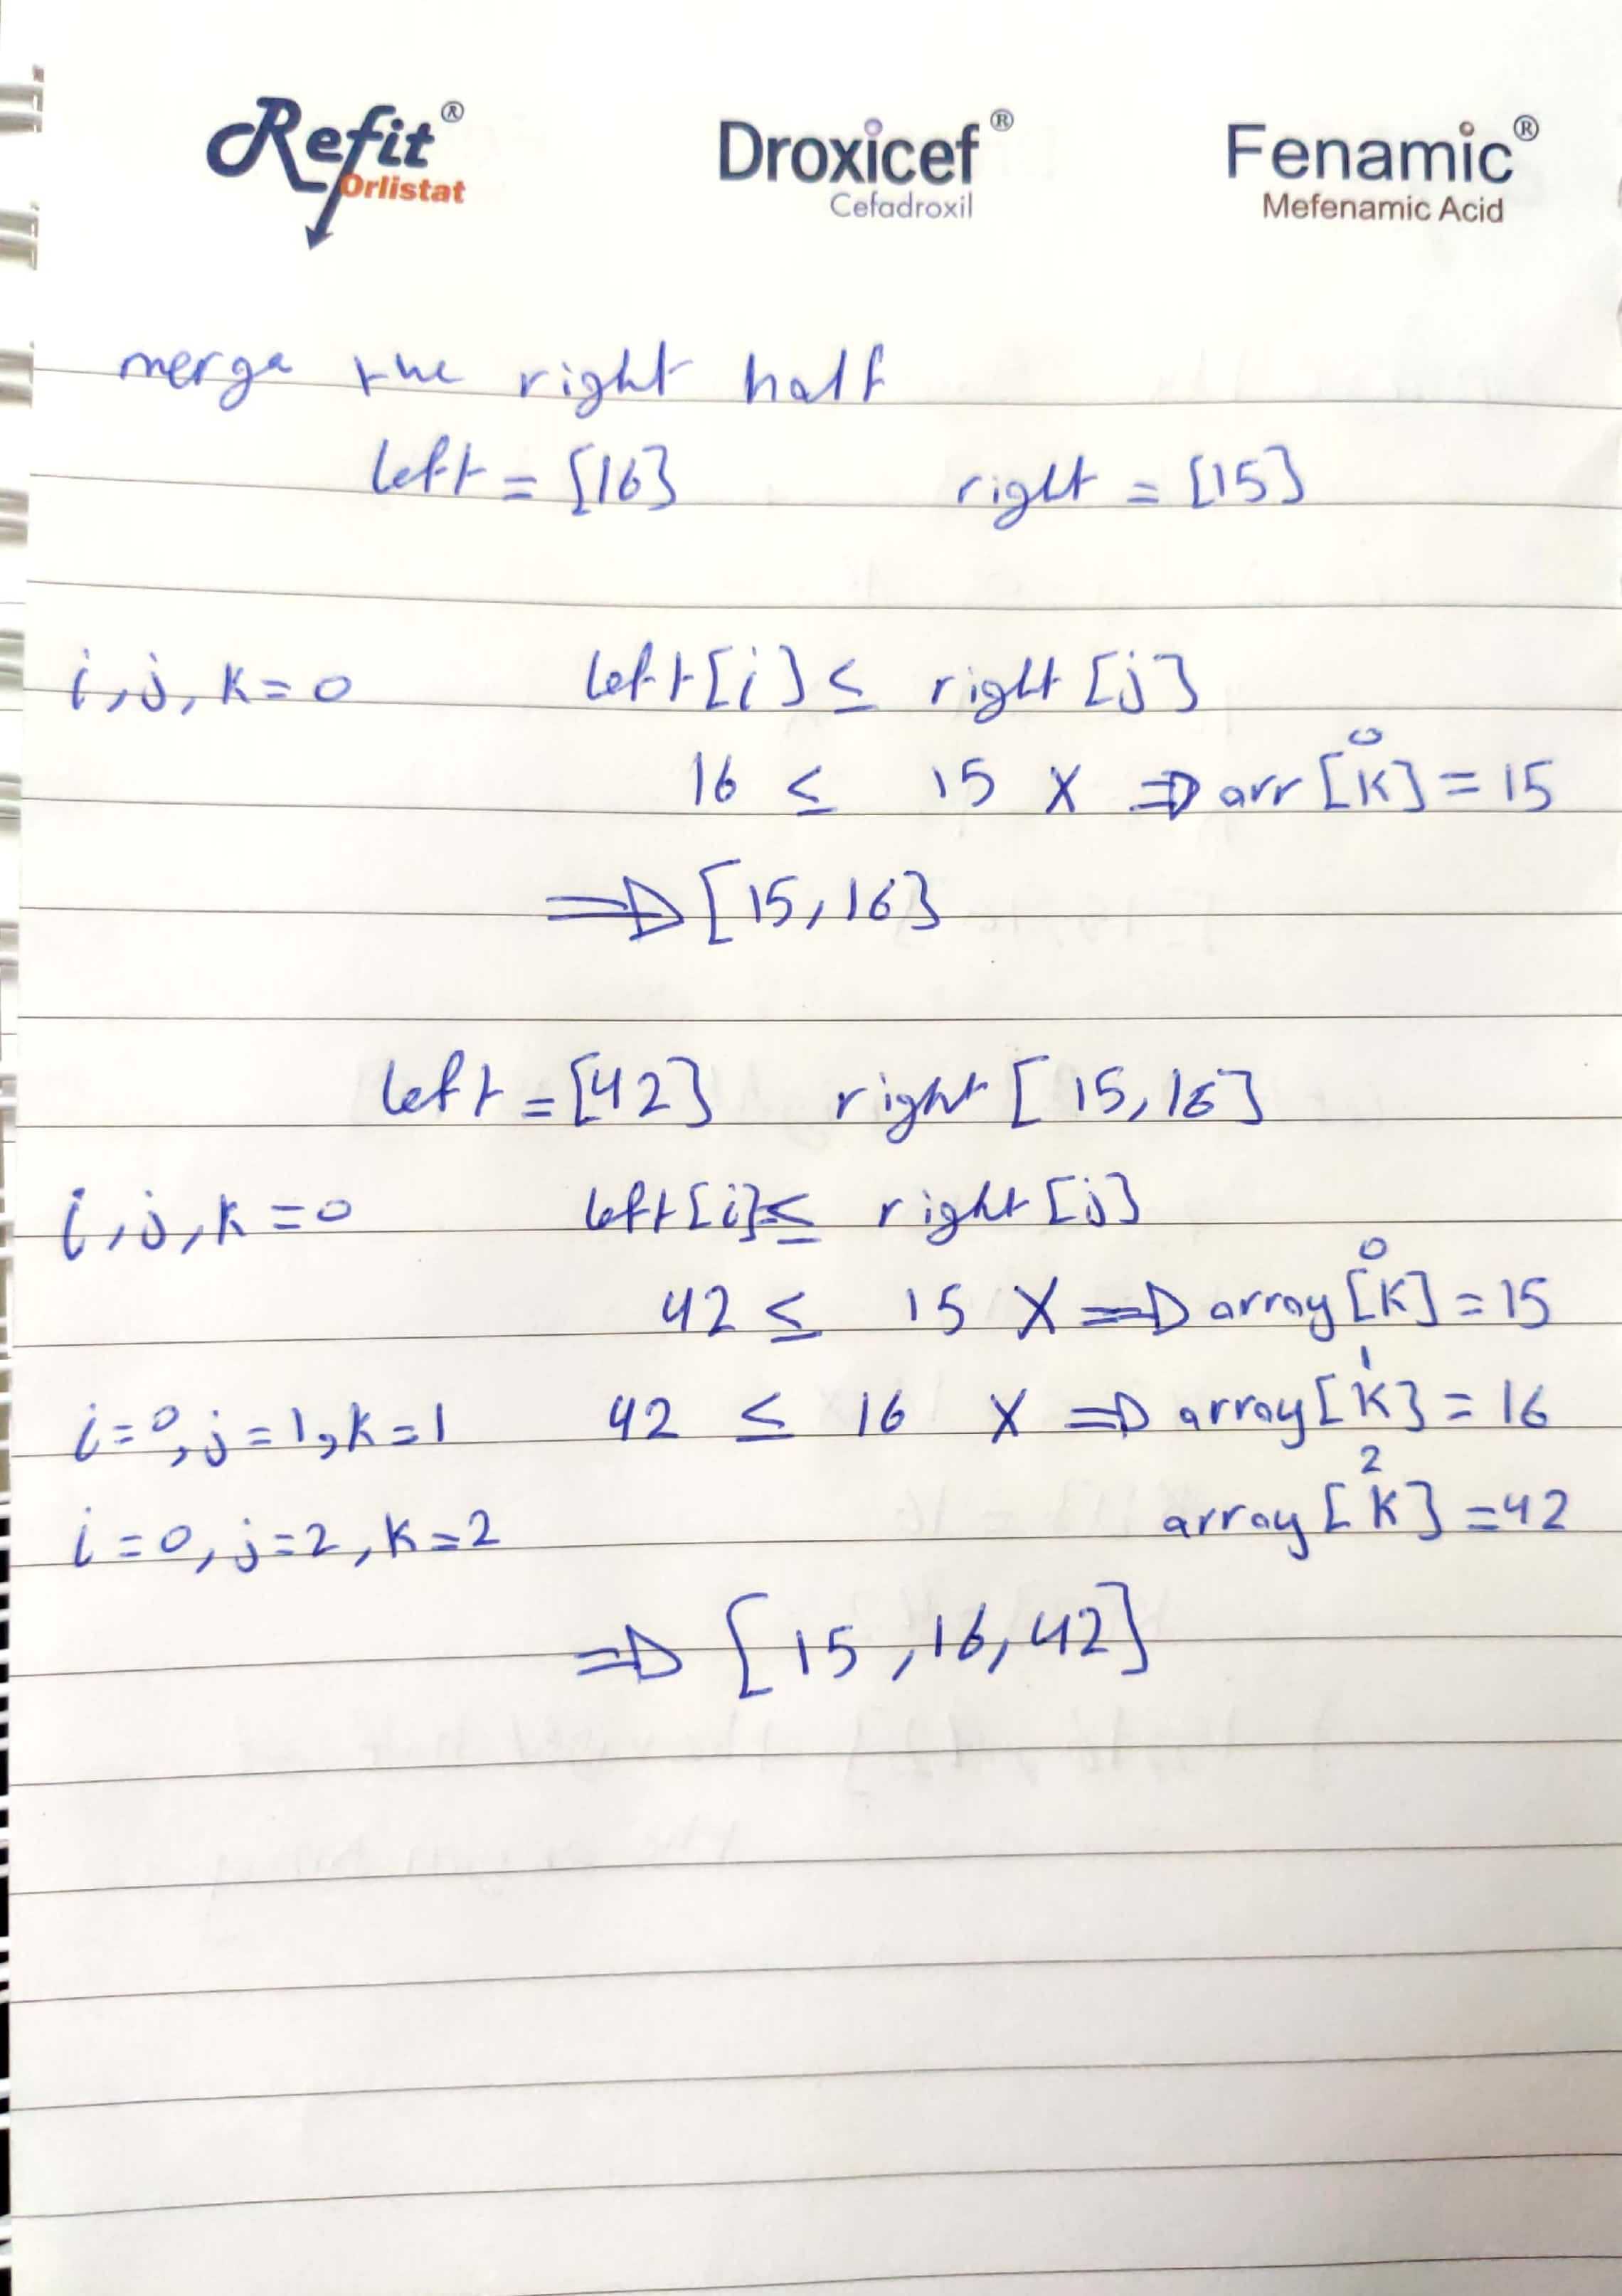 Refit® Droxicef® Fenamic®
Orlistat Cefadroxil Mefenamic Acid
merge the right half
left = [16] right = [15]
i, j, k = 0 left[i] ≤ right [j]
16 ≤ 15 X ⇒ arr [k] = 15
0
⇒ [15, 16]
left = [42] right [15, 16]
i, j, k = 0 left[i] ≤ right [j]
0
42 ≤ 15 X ⇒ array [k] = 15
1
i = 0, j = 1, k = 1 42 ≤ 16 X ⇒ array [k] = 16
2
i = 0, j = 2, k = 2 array [k] = 42
⇒ [15, 16, 42]